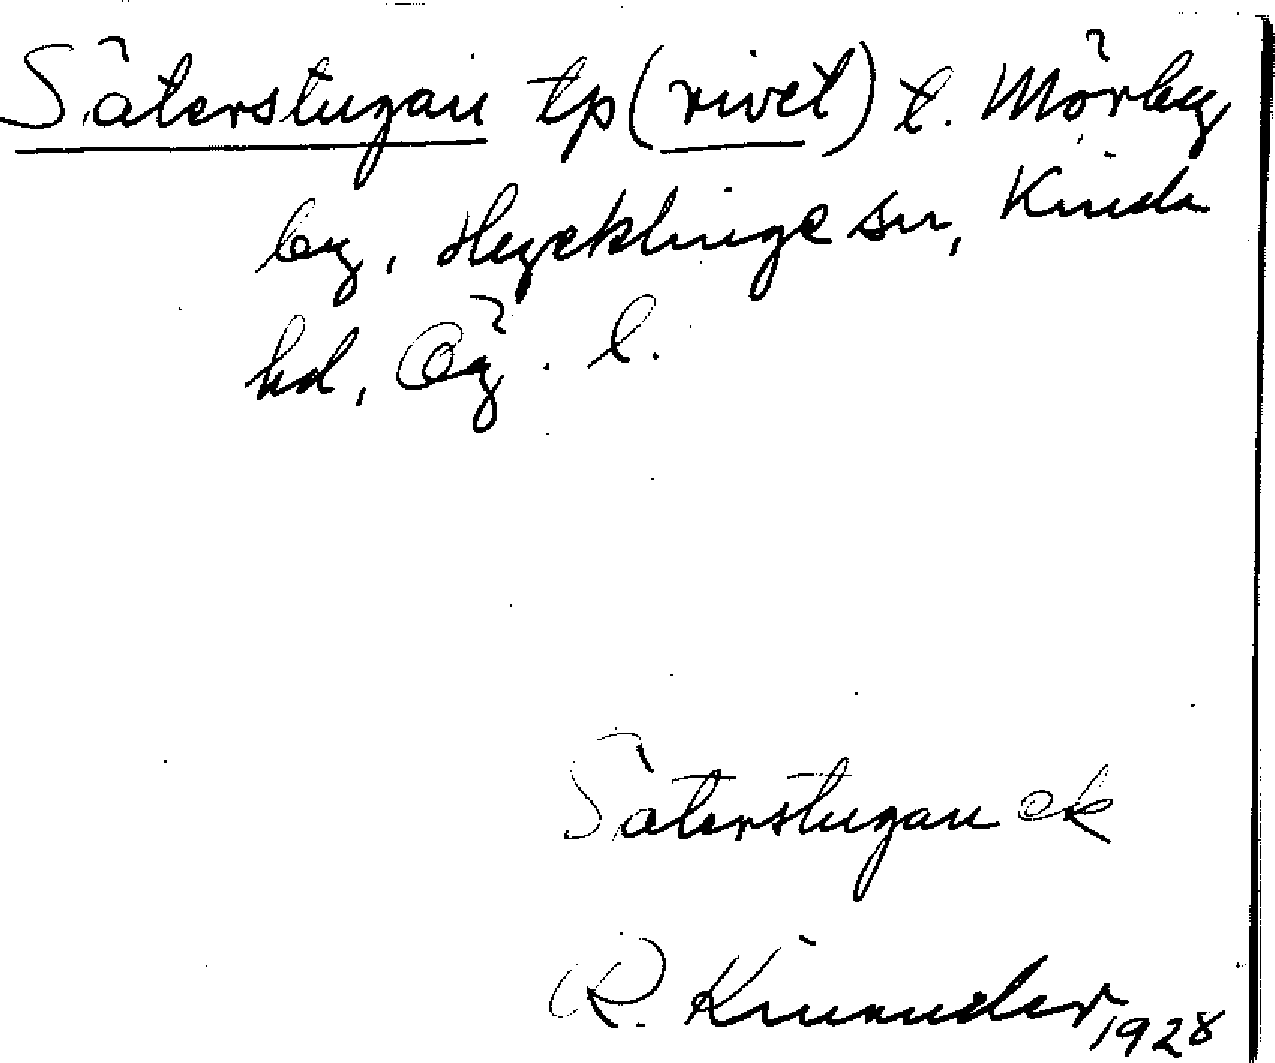 Säterstugan tp (rivet) t. Mörby
by, Hycklinge sn, Kinda
hd, Ög. l.
Säterstugan ek
R. Kinander 1928